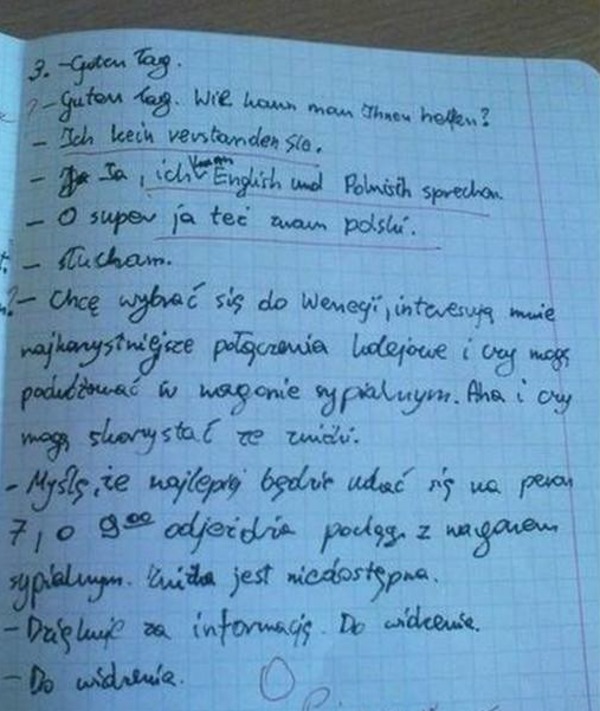 3. - Guten Tag.
? - Guten Tag. Wie kann man Ihnen helfen?
- Ich kein verstanden Sie.
- Ja, ich kann English und Polnisch sprechen.
- O super ja też znam polski.
- Słucham.
- Chcę wybrać się do Wenegi, interesują mnie
najkorzystniejsze połączenia kolejowe i czy mogę
podużować w wagonie sypialnym. Aha i czy
mogę skorzystać ze zniżki.
- Myślę, że najlepiej będzie udać się na peron
7, o 9⁰⁰ odjeżdża pociąg z wagonem
sypialnym. Zniżka jest niedostępna.
- Dziękuję za informację. Do widzenia.
- Do widzenia.
0